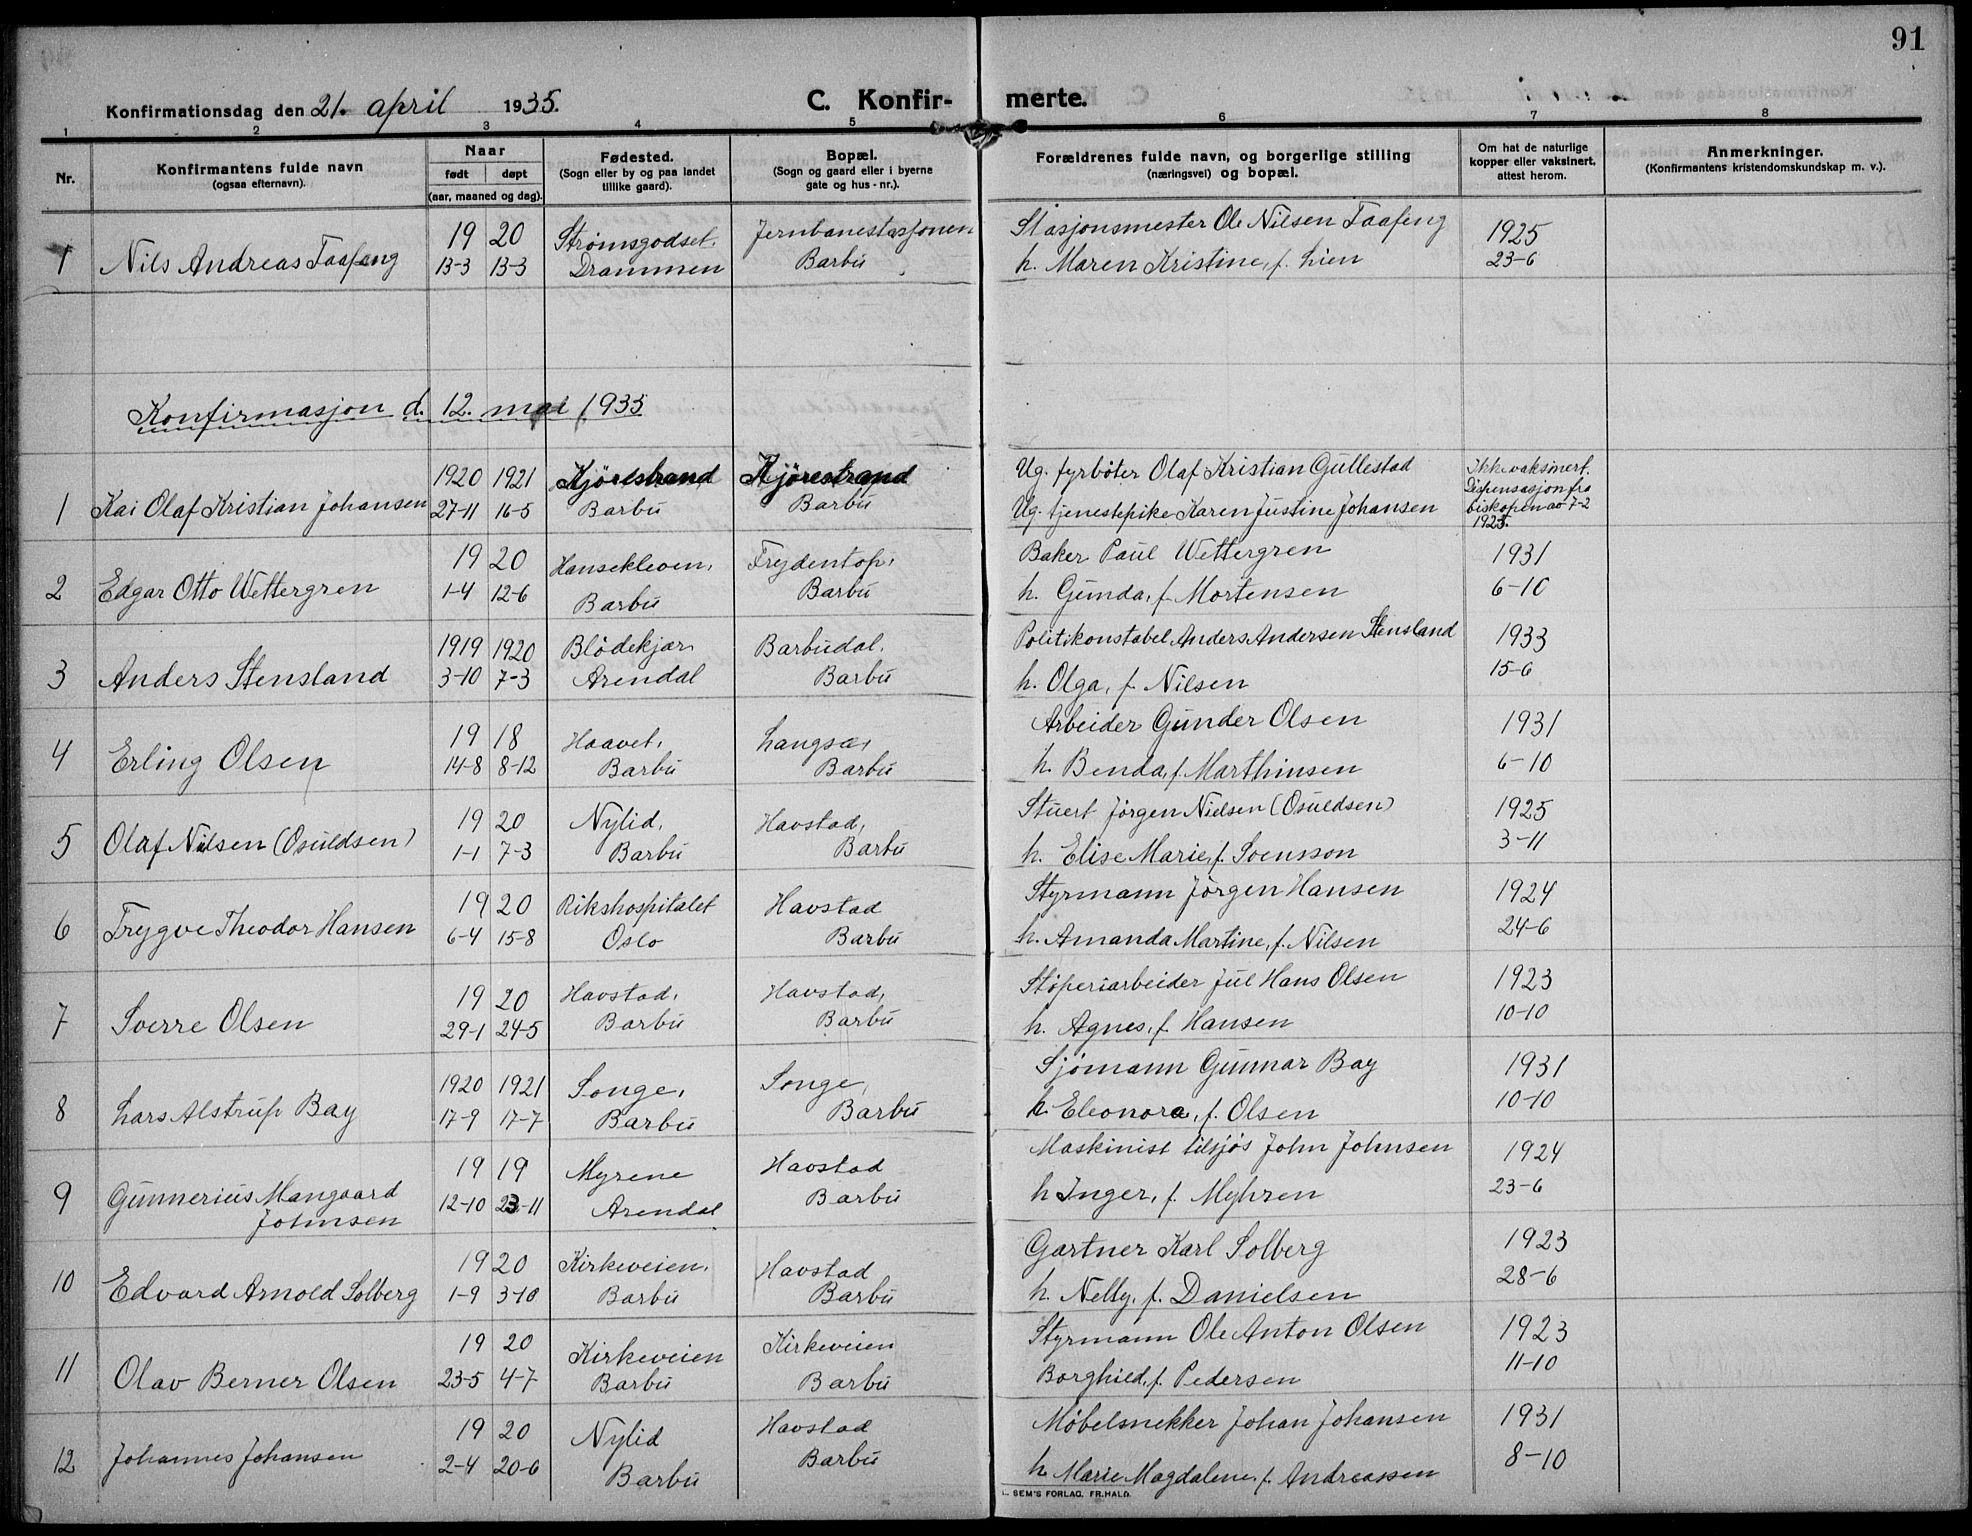 91
Konfirmationsdag den 21. april 1935. C. Konfir- merte.
1 2 3 4 5 6 7 8
Nr.
Konfirmantens fulde navn
(ogsaa efternavn).
Naar
født døpt
(aar, maaned og dag).
Fødested.
(Sogn eller by og paa landet
tillike gaard).
Bopæl.
(Sogn og gaard eller i byerne
gate og hus-nr.).
Forældrenes fulde navn, og borgerlige stilling
(næringsvei) og bopæl.
Om hat de naturlige
kopper eller vaksinert,
attest herom.
Anmerkninger.
(Konfirmantens kristendomskundskap m. v.).
19 20 Strømsgodset. Jernbanestasjonen Stasjonsmester Ole Nilsen Taafeng 1925
1 Nils Andreas Taafeng 13-3 13-3 Drammen Barbu h. Maren Kristine, f. Lien 23-6
Konfirmasjon d. 12. mai 1935
1920 1921 Kjörestrand Kjörestrand Ug. fyrböter Olaf Kristian Gullestad Ikke vaksinert.
Dispensasjon fra
1 Kai Olaf Kristian Johansen 27-11 16-5 Barbu Barbu Ug. tjenestepike Karen Justine Johansen biskopen av 7-2
19 20 Hansekleven, Frydentop, Baker Paul Wettergren 1931
2 Edgar Otto Wettergren 1-4 12-6 Barbu Barbu h. Gunda, f. Mortensen 6-10
1919 1920 Blödekjær Barbudal. Politikonstabel Anders Andersen Stensland 1933
3 Anders Stensland 3-10 7-3 Arendal Barbu h. Olga, f. Nilsen 15-6
19 18 Haavet, Langsæ, Arbeider Gunder Olsen 1931
4 Erling Olsen 14-8 8-12 Barbu Barbu h. Benda, f. Marthinsen 6-10
19 20 Nylid, Havstad, Stuert Jörgen Nielsen (Osuldsen) 1925
5 Olaf Nilsen (Osuldsen) 1-1 7-3 Barbu Barbu h. Elise Marie, f. Svensson 3-11
19 20 Rikshospitalet Havstad Styrmann Jörgen Hansen 1924
6 Trygve Theodor Hansen 6-4 15-8 Oslo Barbu h. Amanda Martine, f. Nilsen 24-6
19 20 Havstad, Havstad, Støperiarbeider Jul Hans Olsen 1923
7 Sverre Olsen 29-1 24-5 Barbu Barbu h. Agnes, f. Hansen 10-10
1920 1921 Songe, Songe, Sjömann Gunnar Bay 1931
8 Lars Alstrup Bay 17-9 17-7 Barbu Barbu h. Eleonora, f. Olsen 10-10
19 19 Myrene Havstad Maskinist tilsjøs John Johnsen 1924
9 Gunnerius Mangaard
Johnsen 12-10 23-11 Arendal Barbu h Inger, f. Myhren 23-6
19 20 Kirkeveien, Havstad Gartner Karl Solberg 1923
10 Edvard Arnold Solberg 1-9 3-10 Barbu Barbu h. Nelly, f. Danielsen 28-6
19 20 Kirkeveien Kirkeveien Styrmann Ole Anton Olsen 1923
11 Olav Berner Olsen 23-5 4-7 Barbu Barbu Borghild, f. Pedersen 11-10
19 20 Nylid Havstad Møbelsnekker Johan Johansen 1931
12 Johannes Johansen 2-4 20-6 Barbu Barbu h. Marie Magdalene, f. Andreassen 8-10
SEM'S FORLAG, FR.HALD.